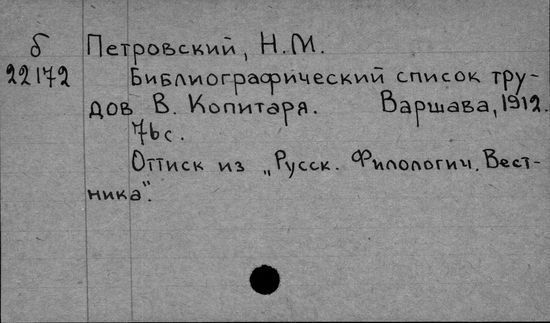 б Петровский, Н.М.
22172 Библиографический список тру-
дов В. Копитаря. Варшава, 1912.
76 с.
Оттиск из „Русск. Филологич. Вест-
ника".